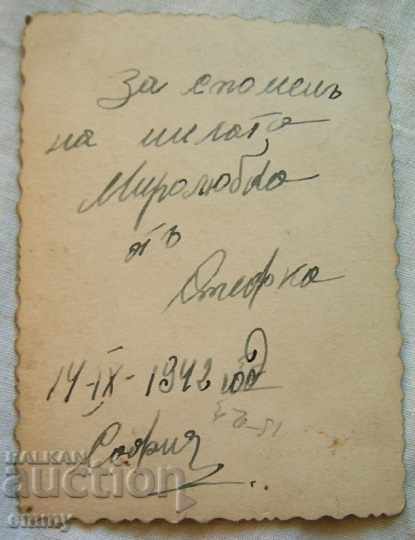 За споменъ
на милата
Миролюбка
отъ
Стефка
14-IX-1942 год
София
BALKAN
auction
emmy